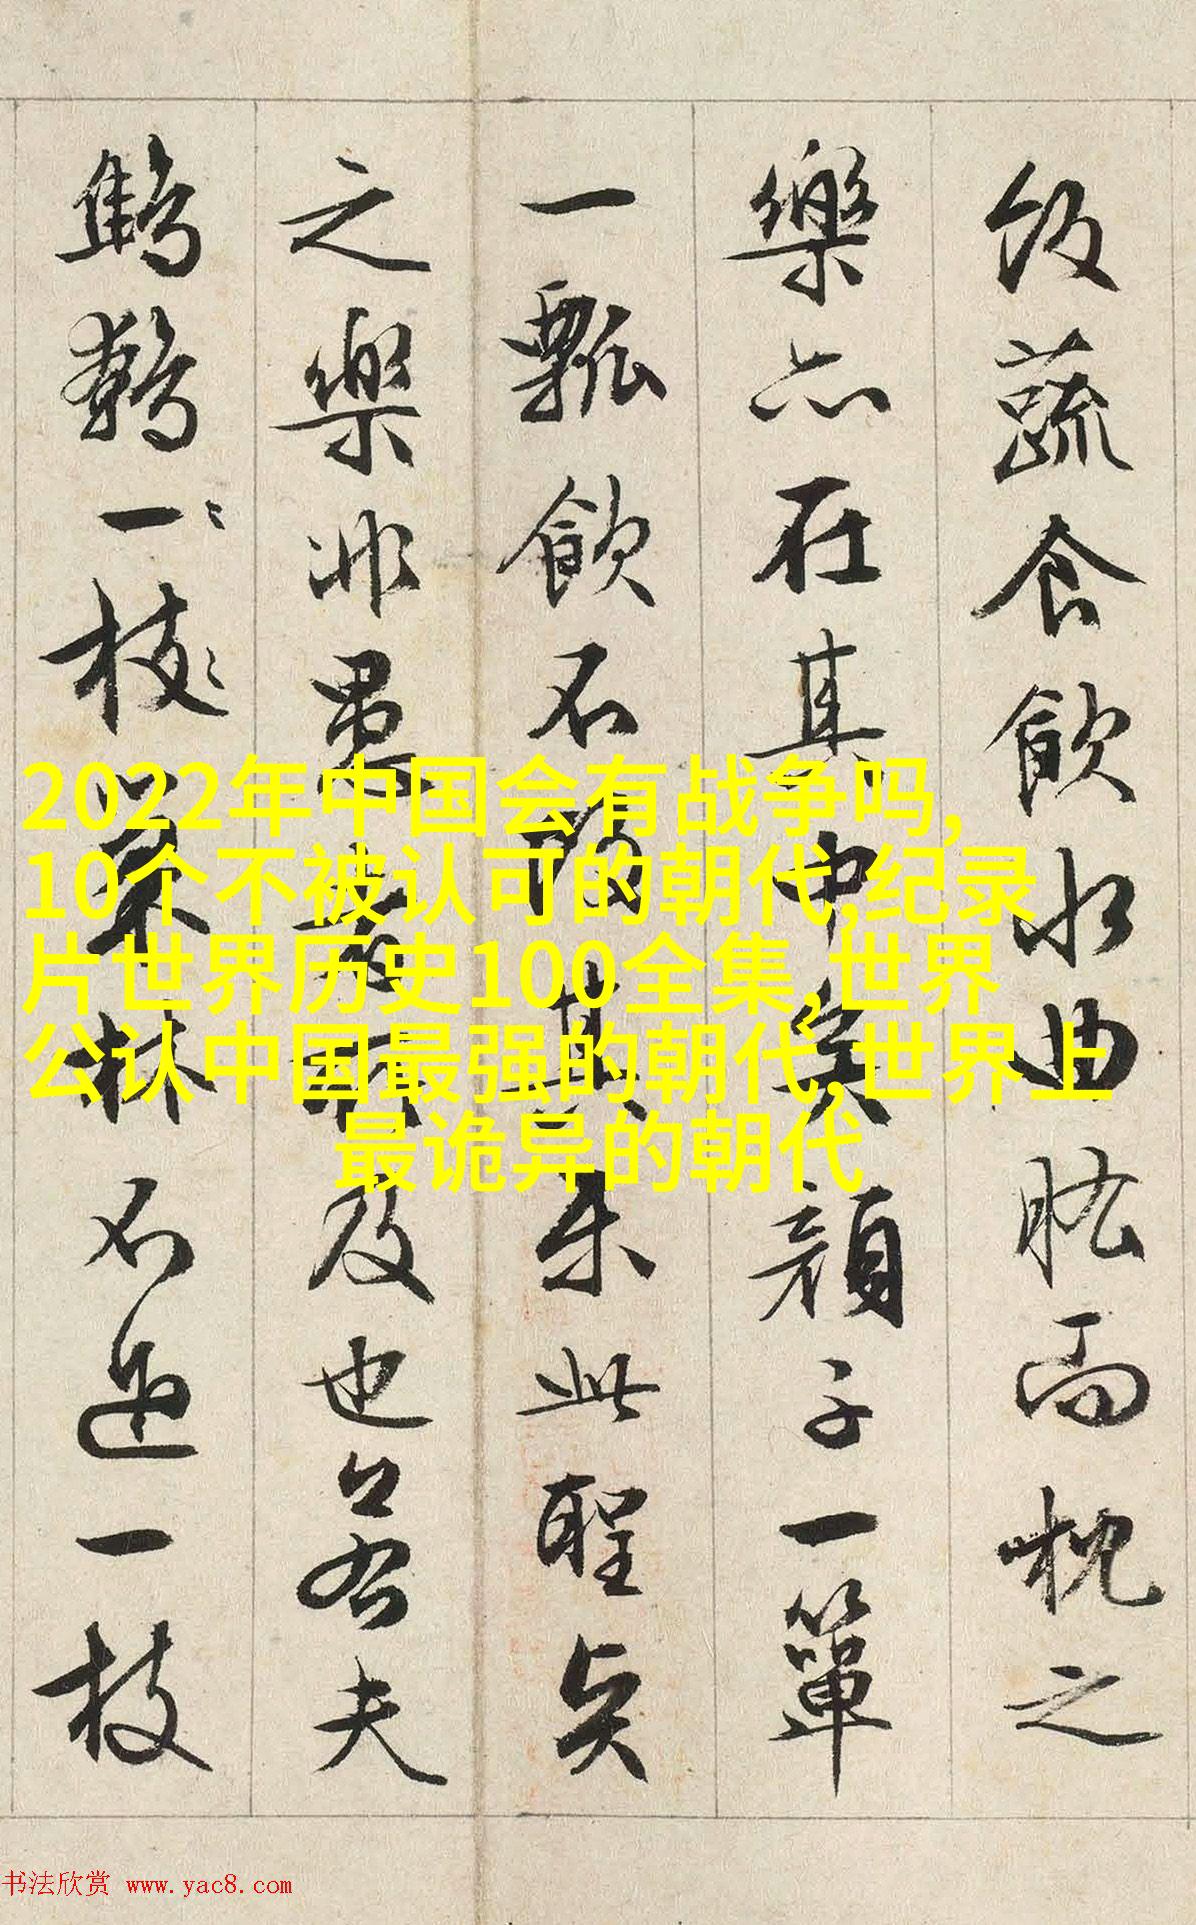 饭蔬食飲水曲肱而枕之
樂亦在其中矣顔子一箪
一瓢飲不改其樂此聖贤
之樂非愚者所及也若夫
鷦鷯一〻枝〻巢林不過一枝
2022年中国会有战争吗,
10个不被认可的朝代,纪录
片世界历史100全集,世界
公认中国最强的朝代,世界上
最诡异的朝代
书法欣赏 www.yac8.com